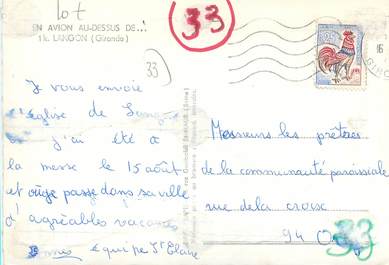 lot
33
EN AVION AU-DESSUS DE...
LANGON (Gironde)
33
Je vous envoie
l'église de
j'ai été à
la messe le 15 août
et passe dans sa ville
d'agréables vacances
équipe St
Messieurs les prêtres
de la communauté paroissiale
rue de la croix
94
33